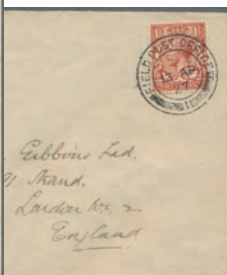 FIELD POST OFFICE
Gibbons Ltd.
91 Strand.
London W. 2.
England